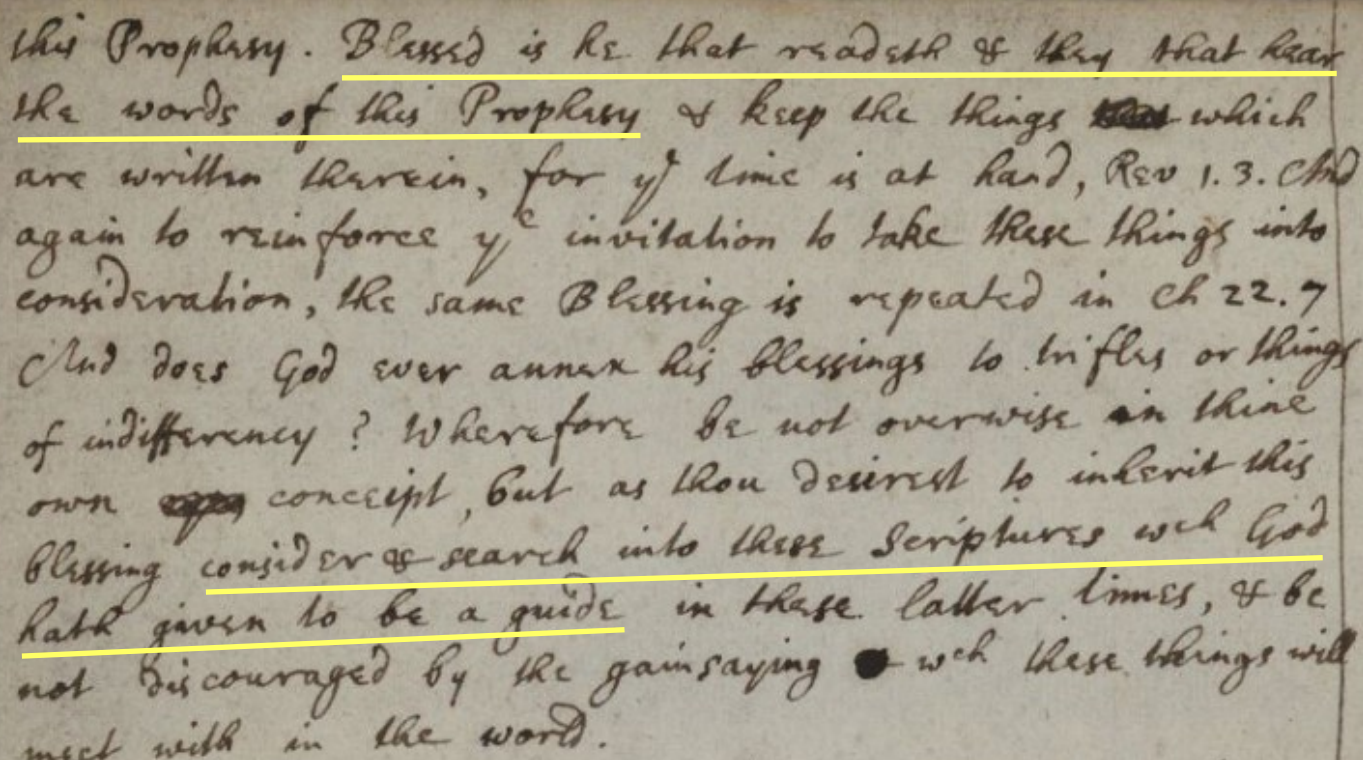 this Prophesy. Blessed is he that readeth & they that hear
the words of this Prophesy & keep the things which
are written therein, for yᵉ time is at hand, Rev 1.3. And
again to reinforce yᵉ invitation to take these things into
consideration, the same Blessing is repeated in Ch 22.7
And does God ever annex his blessings to trifles or things
of indifferency? Wherefore be not overwise in thine
own conceipt, but as thou desirest to inherit this
blessing consider & search into these Scriptures wch God
hath given to be a guide in these latter times, & be
not discouraged by the gainsaying wch these things will
meet with in the world.